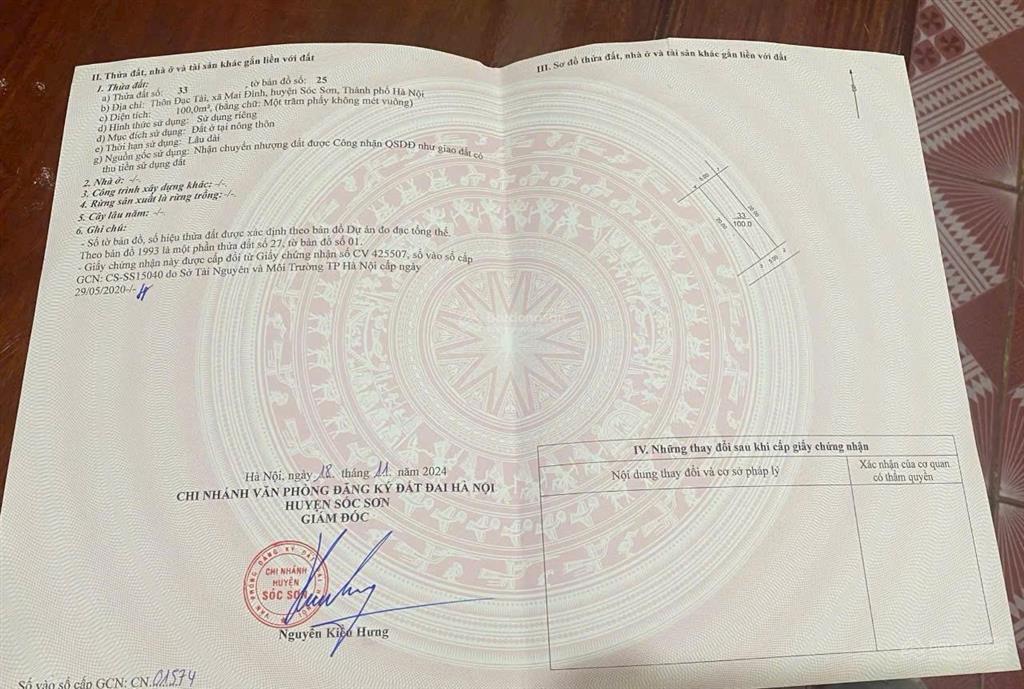 II. Thửa đất, nhà ở và tài sản khác gắn liền với đất
1. Thửa đất:
a) Thửa đất số: 33 , tờ bản đồ số: 25
b) Địa chỉ: Thôn Đạc Tài, xã Mai Đình, huyện Sóc Sơn, Thành phố Hà Nội
c) Diện tích: 100,0m², (bằng chữ: Một trăm phẩy không mét vuông)
d) Hình thức sử dụng: Sử dụng riêng
đ) Mục đích sử dụng: Đất ở tại nông thôn
e) Thời hạn sử dụng: Lâu dài
g) Nguồn gốc sử dụng: Nhận chuyển nhượng đất được Công nhận QSDĐ như giao đất có
thu tiền sử dụng đất
2. Nhà ở: -/-
3. Công trình xây dựng khác: -/-.
4. Rừng sản xuất là rừng trồng: -/-.
5. Cây lâu năm: -/-.
6. Ghi chú:
- Số tờ bản đồ, số hiệu thửa đất được xác định theo bản đồ Dự án đo đạc tổng thể.
Theo bản đồ 1993 là một phần thửa đất số 27, tờ bản đồ số 01.
- Giấy chứng nhận này được cấp đổi từ Giấy chứng nhận số CV 425507, số vào sổ cấp
GCN: CS-SS15040 do Sở Tài Nguyên và Môi Trường TP Hà Nội cấp ngày
29/05/2020-/-
Hà Nội, ngày 18 tháng 11 năm 2024
CHI NHÁNH VĂN PHÒNG ĐĂNG KÝ ĐẤT ĐAI HÀ NỘI
HUYỆN SÓC SƠN
GIÁM ĐỐC
VĂN PHÒNG ĐĂNG KÝ ĐẤT ĐAI
CHI NHÁNH
HUYỆN
SÓC SƠN
Nguyễn Kiều Hưng
Số vào sổ cấp GCN: CN.01574
III. Sơ đồ thửa đất, nhà ở và tài sản khác gắn liền với đất
5.00
20.00
20.00
33
100.0
5.00
IV. Những thay đổi sau khi cấp giấy chứng nhận
Nội dung thay đổi và cơ sở pháp lý
Xác nhận của cơ quan
có thẩm quyền
Batdongsan